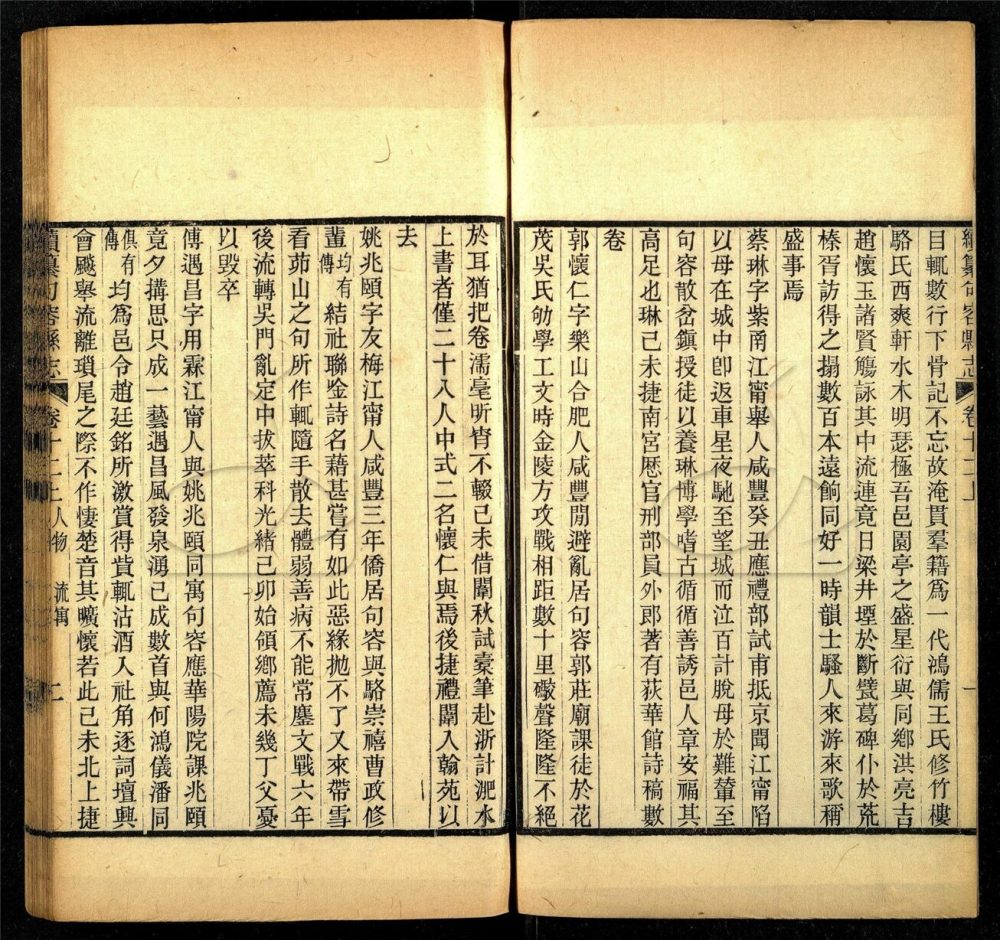 續纂句容縣志 卷十二上 一
目輒數行下骨記不忘故淹貫羣籍爲一代鴻儒王氏修竹樓
駱氏西爽軒水木明瑟極吾邑園亭之盛星衍與同鄉洪亮吉
趙懷玉諸賢觴詠其中流連竟日梁井堙於斷甓葛碑仆於荒
榛胥訪得之搨數百本遠餉同好一時韻士騷人來游來歌稱
盛事焉
蔡琳字紫南江甯舉人咸豐癸丑應禮部試甫抵京聞江甯陷
以母在城中卽返車星夜馳至望城而泣百計脫母於難輦至
句容散岔鎭授徒以養琳博學嗜古循循善誘邑人章安福其
高足也琳己未捷南宮厯官刑部員外郎著有荻華館詩稿數
卷
郭懷仁字樂山合肥人咸豐閒避亂居句容郭莊廟課徒於花
茂吳氏劬學工文時金陵方攻戰相距數十里礮聲隆隆不絕
於耳猶把卷濡毫昕宵不輟己未借闈秋試橐筆赴浙計淝水
上書者僅二十八人中式二名懷仁與焉後捷禮闈入翰苑以
去
姚兆頤字友梅江甯人咸豐三年僑居句容與駱崇禧曹政修
輩均有傳結社聯唫詩名藉甚嘗有如此惡緣拋不了又來帶雪
看茆山之句所作輒隨手散去體弱善病不能常鏖文戰六年
後流轉吳門亂定中拔萃科光緒己卯始領鄉薦未幾丁父憂
以毀卒
傅遇昌字用霖江甯人與姚兆頤同寓句容應華陽院課兆頤
竟夕搆思只成一藝遇昌風發泉湧已成數首與何鴻儀潘同
俱有傳均爲邑令趙廷銘所激賞得貲輒沽酒入社角逐詞壇興
會飈舉流離瑣尾之際不作悽楚音其曠懷若此己未北上捷
續纂句容縣志 卷十二上 人物 流寓 二